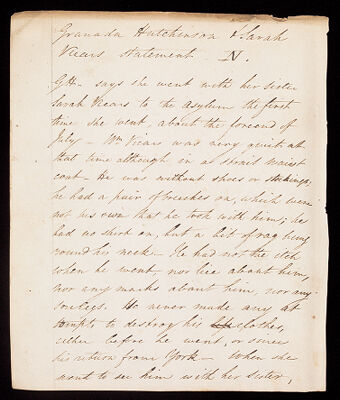 Granada Hutchinson & Sarah
Vicars statement N.
GH. says she went with her sister
Sarah Vicars to the asylum the first
time she went, about the forend of
July – Wm Vicars was very quiet at
that time although in a strait waist
coat – He was without shoes or stockings,
he had a pair of breeches on, which were
not his own that he took with him; he
had no shirt on, but a bit of rag being
round his neck – He had not the itch
when he went, nor lice about him,
nor any marks about him, nor any
sore legs. He never made any at
tempts to destroy his clothes,
either before he went, or since
his return from York – When she
went to see him with her sister,